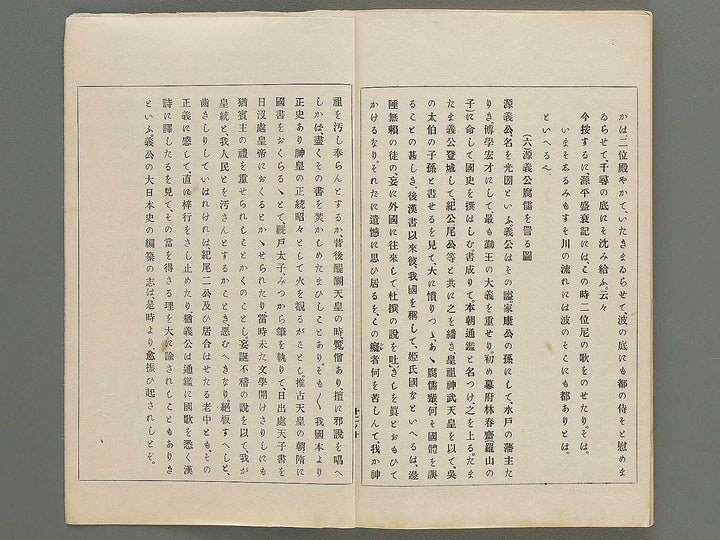 かは二位殿やかて、いたきまゐらせて、波の底にも都の侍そと慰めま
ゐらせて、千尋の底にそ沈み給ふ。云々
今按するに、源平盛衰記には、この時二位尼の歌をのせたり。そは。
いまそゑるみもすそ川の流れには波のそこにも都ありとは。
といへるへ
(六)源義公腐儒を詈る圖
源義公名を光圀といふ。義公はその謚家康公の孫にして、水戸の藩主た
りき。博學宏才にして最も勤王の大義を重せり。初め幕府林春齋羅山の
子に命して國史を撰はしむ。書成りて本朝通鑑と名つけ、之を上る。たま
たま義公登城して、紀公尾公等と共に之を繙き皇祖神武天皇を以て、吳
の太伯の子孫と書せるを見て、大に憤りつゝ、あゝ腐儒輩何そ國體を誤
ることの甚しき。後漢書以來彼我國を稱して、姫氏國なといへるは、邊
陲無賴の徒の、妄に外國に往來して杜撰の說を吐きしを眞とおもひて
かけるなり。それたに遺憾に思ひ居るを、この癡者何を苦しんて、我か神
祖を汚し奉らんとするか。昔後醍醐天皇の時覽僧あり、擅に邪說を唱へ
しかは、盡くその書を焚かしめたまひしことあり。そも〱我國本より
正史あり神皇の正統昭々として火を觀るがことし。推古天皇の朝隋に
國書をおくらるゝとて、厩戸太子、みつから筆を執りて、日出處天子書を
日沒處皇帝におくるとかゝせられたり當時未た文學開けさりしにも
猶賓主の禮を重せられしことかくのことし妄誕不稽の說を以て、我が
皇統と、我人民とを汚さんとするかことき惡むへきなり。絕板すへしと、
齒きしりしていはれければ、紀尾二公及ひ居合はせたる老中とも、その
正義に感して、直に梓行をさし止めたり猶義公は通鑑に國歌を悉く漢
詩に譯したるを見て、その當を得さる理を大に諭されしこともありき
といふ。義公の大日本史の編纂の志は、是時より愈振ひ起されしとそ。